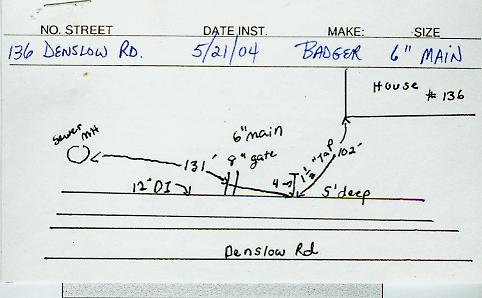 NO. STREET DATE INST. MAKE: SIZE
136 DENSLOW RD. 5/21/04 BADGER 6" MAIN
House # 136
Sewer MH
6" main
8" gate
131'
1½" TAP
102'
4
12" DI
5' deep
Denslow Rd